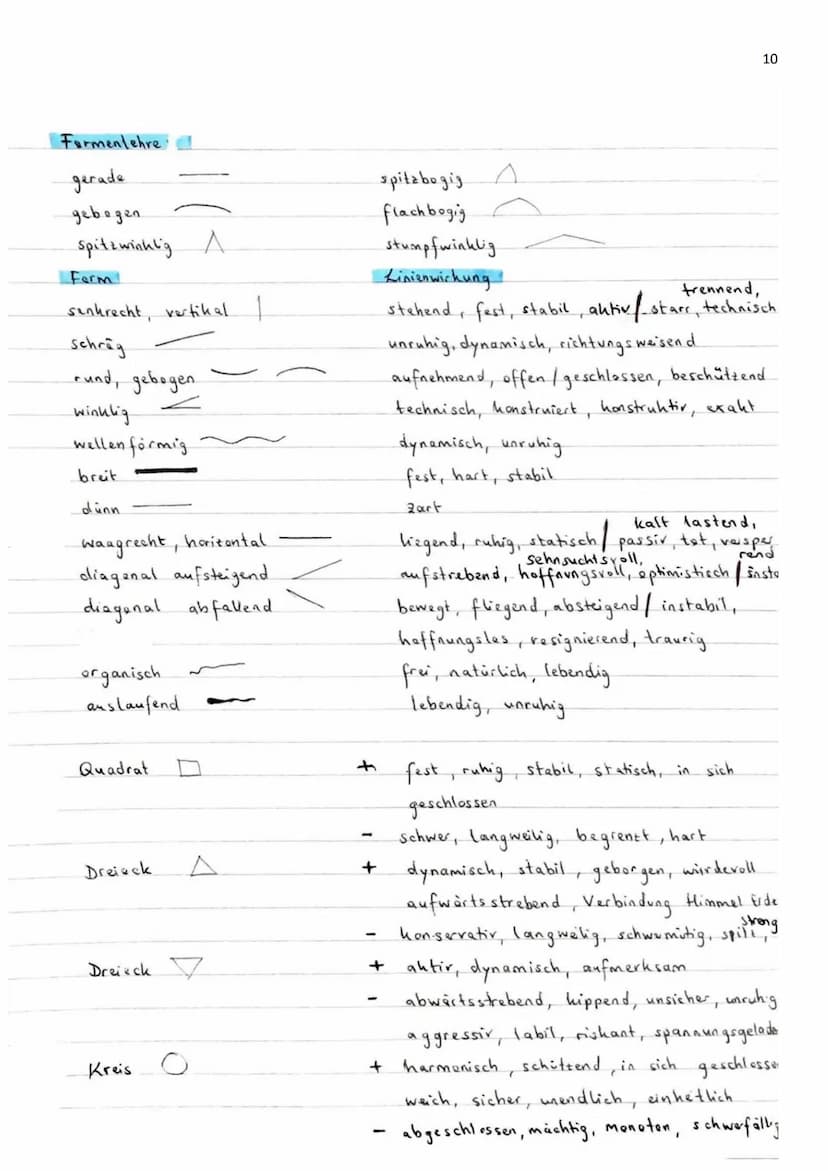 10
Formenlehre:
gerade spitzbogig
gebogen flachbogig
spitzwinklig stumpfwinklig
Form Linienwirkung
trennend,
senkrecht, vertikal stehend, fest, stabil, aktiv / starr, technisch
schräg unruhig, dynamisch, richtungsweisend
rund, gebogen aufnehmend, offen / geschlossen, beschützend
winklig technisch, konstruiert, konstruktiv, exakt
wellenförmig dynamisch, unruhig
breit fest, hart, stabil
dünn zart
kalt lastend,
waagrecht, horizontal liegend, ruhig, statisch / passiv, tot, versper
rend
sehnsuchtsvoll,
diagonal aufsteigend aufstrebend, hoffnungsvoll, optimistisch /
diagonal abfallend bewegt, fliegend, absteigend / instabil,
hoffnungslos, resignierend, traurig
organisch frei, natürlich, lebendig
auslaufend lebendig, unruhig
Quadrat + fest, ruhig, stabil, statisch, in sich
geschlossen
- schwer, langweilig, begrenzt, hart
Dreieck + dynamisch, stabil, geborgen, würdevoll
aufwärtsstrebend, Verbindung Himmel Erde
streng
- konservativ, langweilig, schwermütig, spitz,
Dreieck + aktiv, dynamisch, aufmerksam
- abwärtsstrebend, kippend, unsicher, unruhig
aggressiv, labil, riskant, spannungsgelade
Kreis + harmonisch, schützend, in sich geschlosse
weich, sicher, unendlich, einheitlich
- abgeschlossen, mächtig, monoton, schwerfällig